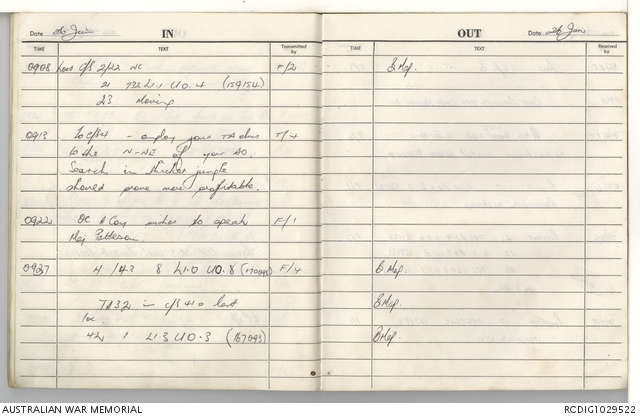 Date 26 Jun IN
TIME TEXT Transmitted by
0908 Locs C/S 2/22 NC F/2
21 L1.1 U0.4 (159154)
23 Moving
0913 To C/S 4 - employ your TA dvn T/4
to the N-NE of your AO.
Search in thicker jungle
should prove more profitable.
0922 OC A Coy wishes to speak F/1
Maj Patterson.
0927 4 /43 8 L1.0 U0.8 F/4
in C/S 41's last
loc
42 1 L1.3 U0.3 (167093)
OUT Date 26 Jun
TIME TEXT Received by
B Map.
B Map.
B Map.
B Map.
AUSTRALIAN WAR MEMORIAL
RCDIG1029522